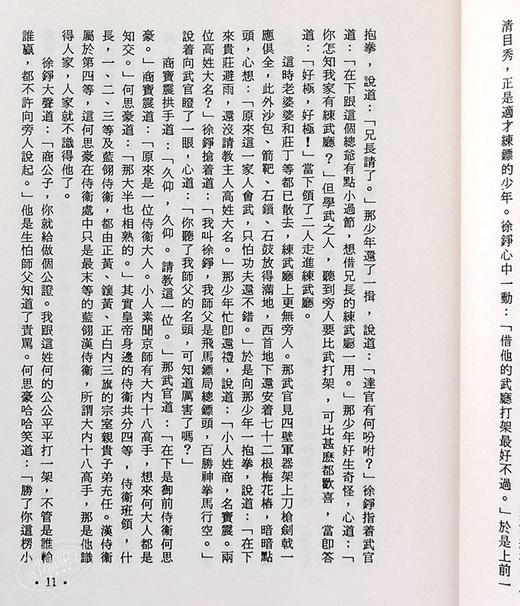 清目秀，正是適才練鏢的少年。徐錚心中一動：「借他的武廳打架最好不過。」於是上前一
抱拳，說道：「兄長請了。」那少年還了一揖，說道：「達官有何吩咐？」徐錚指着武官
道：「在下跟這個總爺有點小過節，想借兄長的練武廳一用。」那少年好生奇怪，心道：「
你怎知我家有練武廳？」但學武之人，聽到旁人要比武打架，可比甚麽都歡喜，當即答
道：「好極，好極！」當下領了二人走進練武廳。
這時老婆婆和莊丁等都已散去，練武廳上更無旁人。那武官見四壁軍器架上刀槍劍戟一
應俱全，此外沙包、箭靶、石鎖、石鼓放得滿地，西首地下還安着七十二根梅花樁，暗暗點
頭，心想：「原來這一家人會武，只怕功夫還不錯。」於是向那少年一抱拳，說道：「在下
來貴莊避雨，還沒請教主人高姓大名。」那少年忙即還禮，說道：「小人姓商，名寶震。兩
位高姓大名？」徐錚搶着道：「我叫徐錚，我師父是飛馬鏢局總鏢頭，百勝神拳馬行空。」
說着向武官瞪了一眼，心道：「你聽了我師父的名頭，可知道厲害了嗎？」
商寶震拱手道：「久仰，久仰。請教這一位。」那武官道：「在下是御前侍衞何思
豪。」商寶震道：「原來是一位侍衞大人。小人素聞京師有大內十八高手，想來何大人都是
知交。」何思豪道：「那大半也相熟的。」其實皇帝身邊的侍衞共分四等，侍衞班領，什
長，一、二、三等及藍翎侍衞，都由正黃、鑲黃、正白內三旗的宗室親貴子弟充任。漢侍衞
屬於第四等，這何思豪在侍衞處中只是最末等的藍翎漢侍衞，所謂大內十八高手，那是他識
得人家，人家就不識得他了。
徐錚大聲道：「商公子，你就給做個公證。我跟這姓何的公公平平打一架，不管是誰輸
誰贏，都不許向旁人說起。」他是生怕師父知道了責罵。何思豪哈哈笑道：「勝了你這楞小
·11·